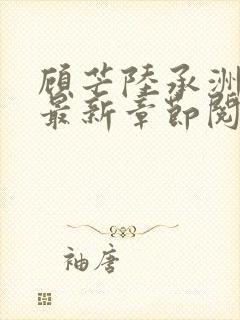 顾芒陆承洲
最新章节阅
袖唐